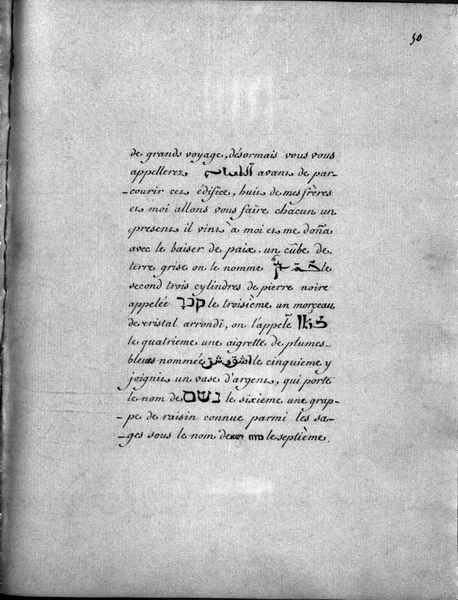 50
de grands voyage, désormais vous vous
appellerez avant de par-
-courir cet édifice, huit de mes frères
et moi allons vous faire chacun un
present il vint à moi et me dona
avec le baiser de paix un cube de
terre grise on le nomme le
second trois cylindres de pierre noire
appelée le troisième un morceau
de cristal arrondi, on l'appele
le quatrieme une aigrette de plumes-
bleues nommée le cinquieme y
joignit un vase d'argent, qui porte
le nom de נשם le sixieme une grap-
-pe de raisin connue parmi les sa-
-ges sous le nom de le septième.